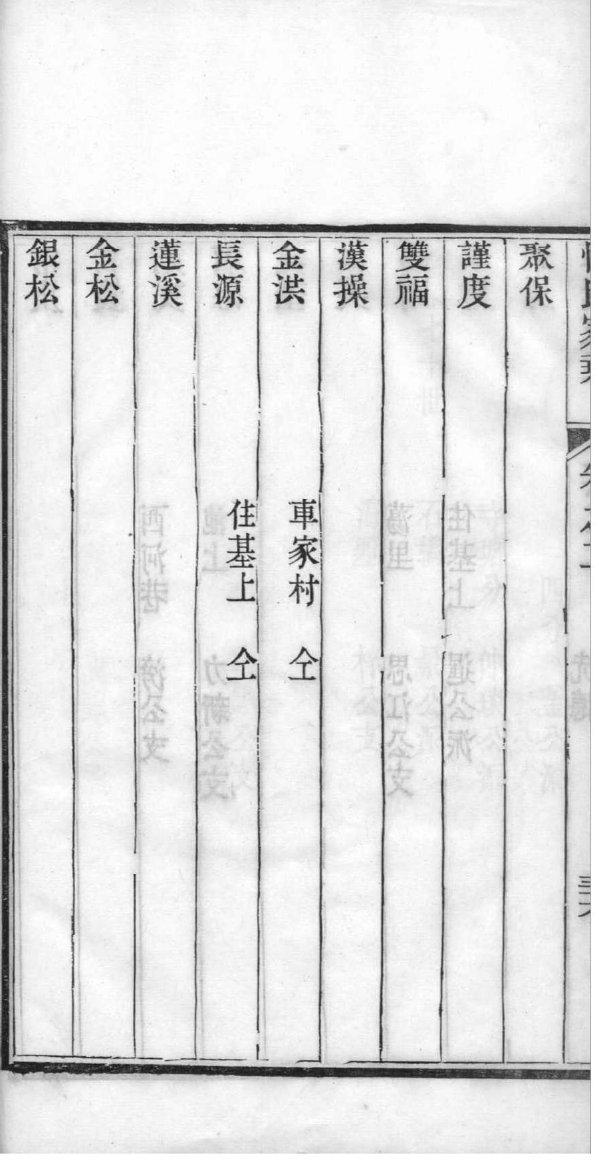 聚保
謹度
雙福
漢操
金洪 車家村 仝
長源 住基上 仝
蓮溪
金松
銀松